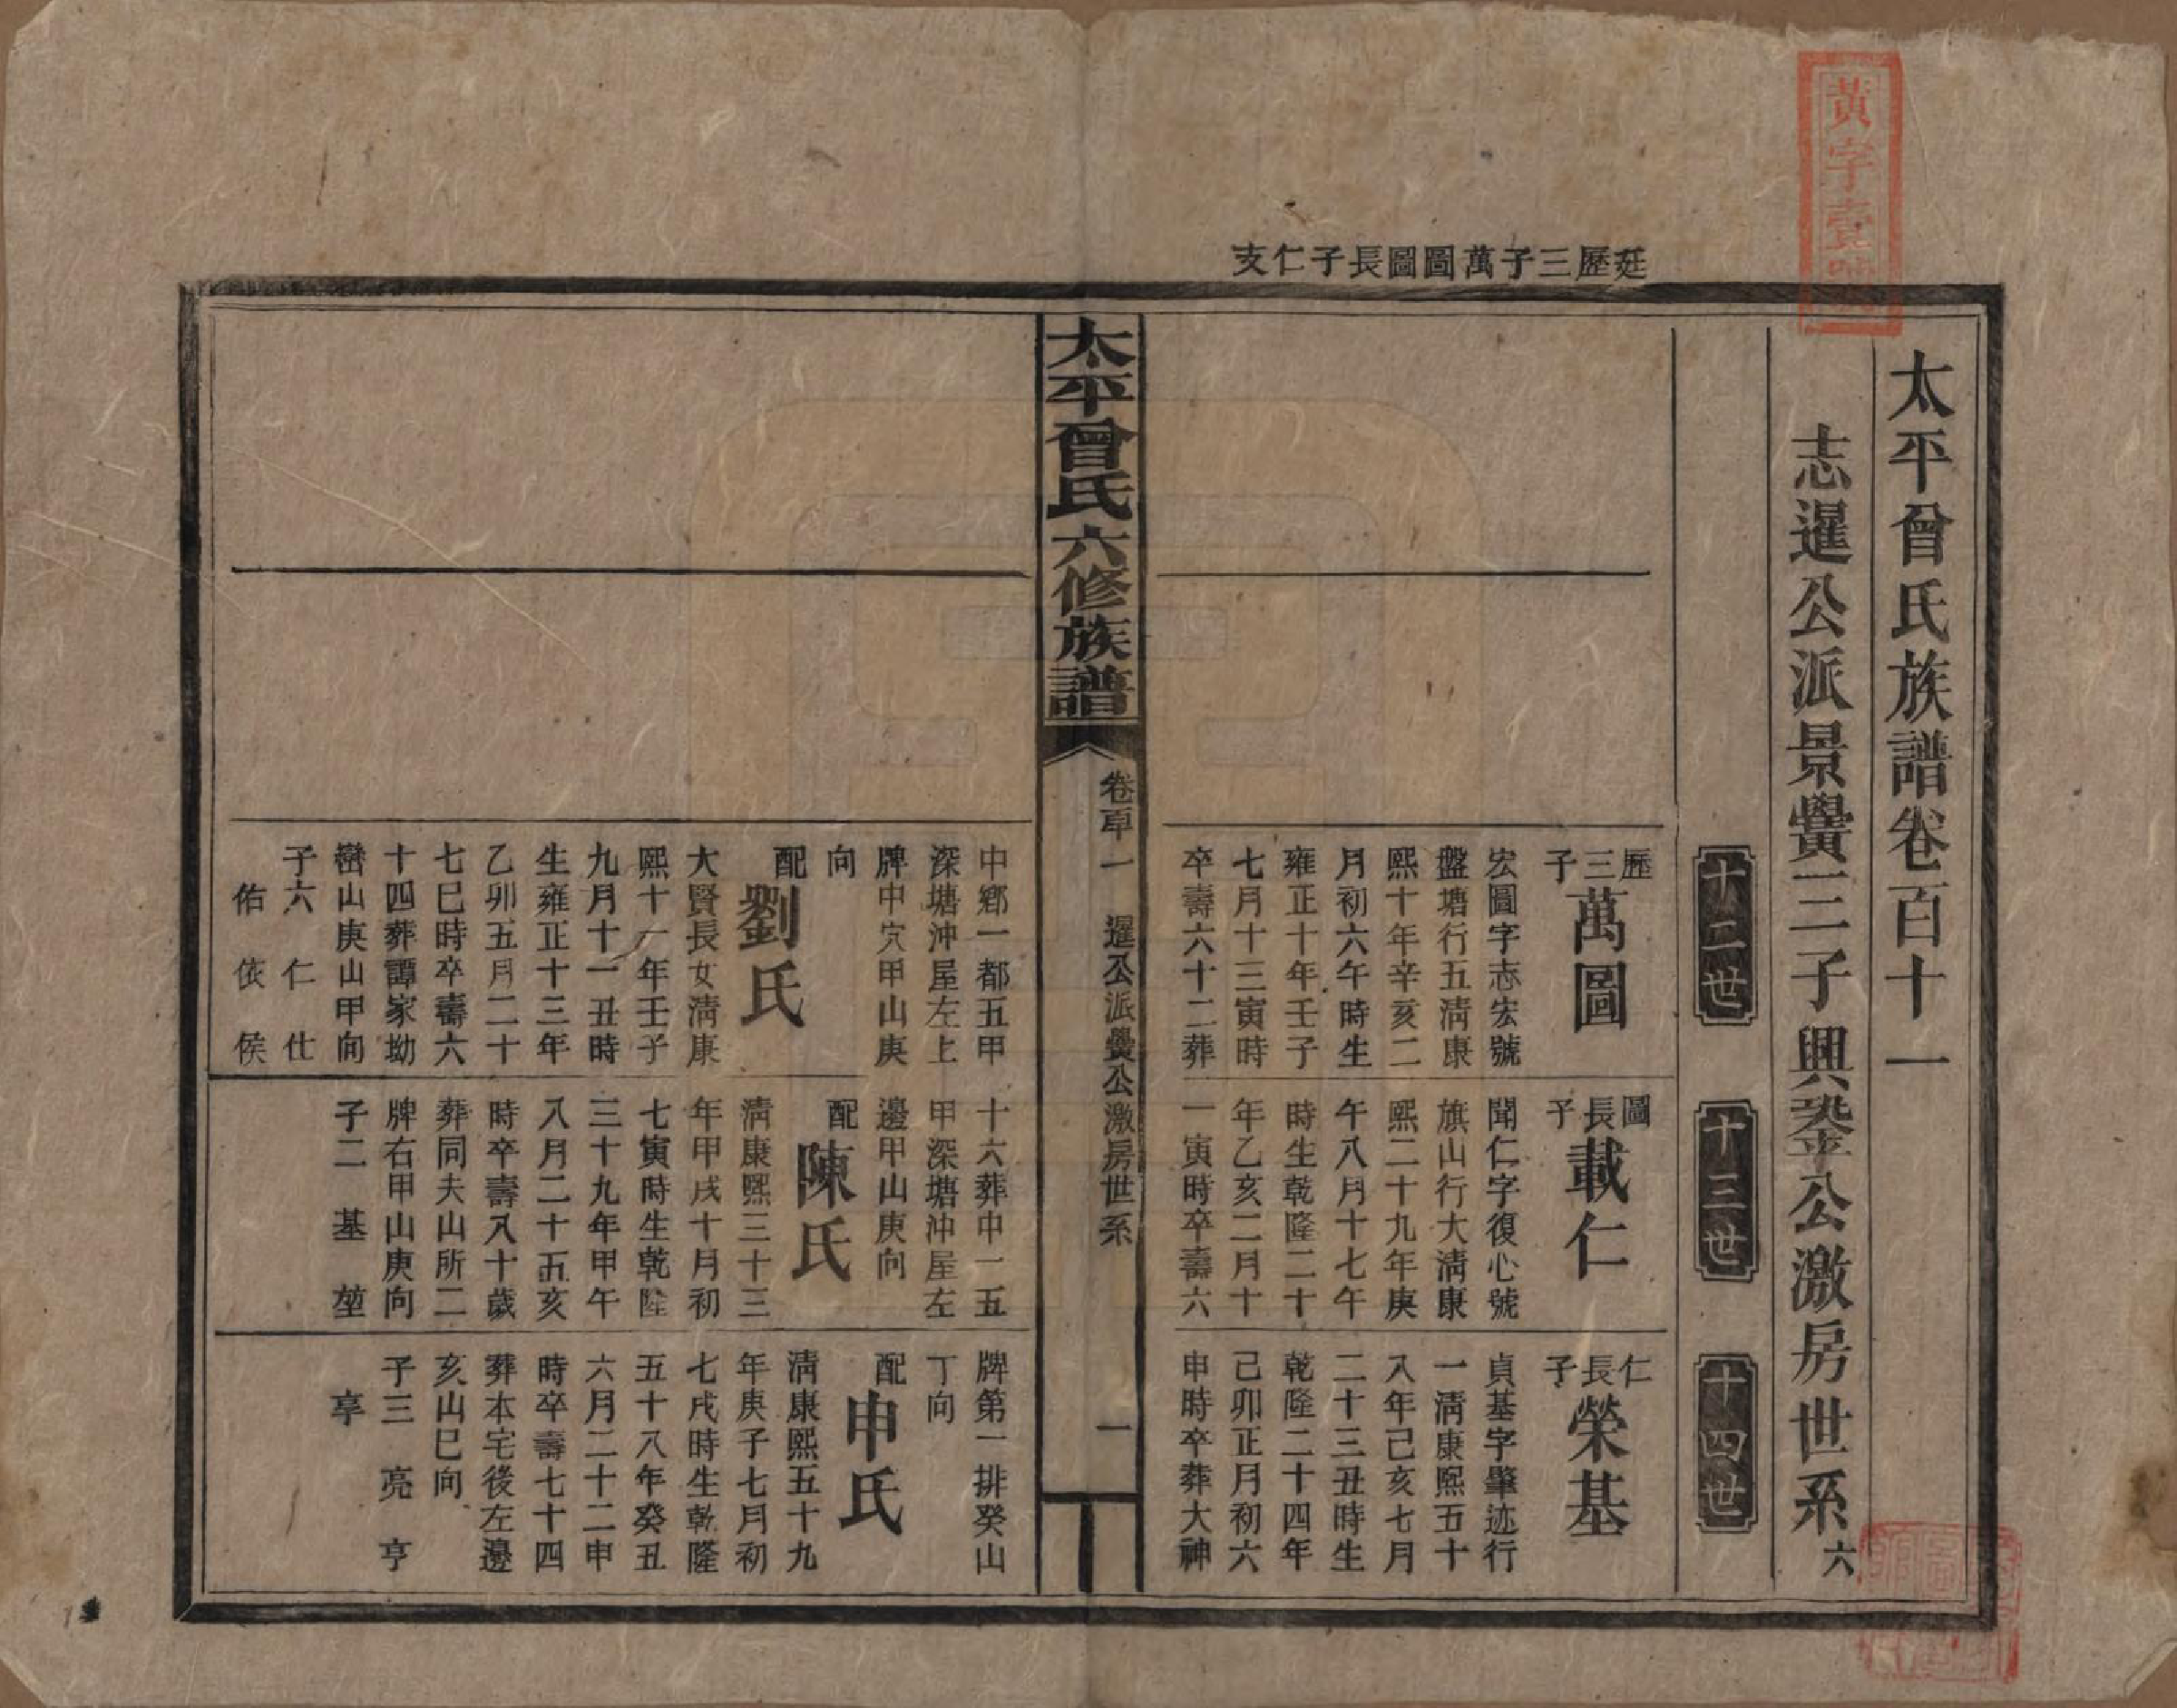 黃字壹號
廷歷三子萬圖圖長子仁支
太平曾氏族譜卷百十一
志暹公派景黌三子興瑩公激房世系六
十二世
十三世
十四世
歷三子
萬圖
宏圖字志宏號
盤塘行五淸康
熙十年辛亥二
月初六午時生
雍正十年壬子
七月十三寅時
卒壽六十二葬
中鄉一都五甲
深塘沖屋左上
牌中穴甲山庚
向
配劉氏
大賢長女淸康
熙十一年壬子
九月十一丑時
生雍正十三年
乙卯五月二十
七巳時卒壽六
十四葬譚家坳
巒山庚山甲向
子六 仁 仕
佑 依 侯
圖長子
載仁
聞仁字復心號
旗山行大淸康
熙二十九年庚
午八月十七午
時生乾隆二十
年乙亥二月十
一寅時卒壽六
十六葬中一五
甲深塘沖屋左
邊甲山庚向
配陳氏
淸康熙三十三
年甲戌十月初
七寅時生乾隆
三十九年甲午
八月二十五亥
時卒壽八十歲
葬同夫山所二
牌右甲山庚向
子二 基 堃
仁長子
榮基
貞基字肇迹行
一淸康熙五十
八年己亥七月
二十三丑時生
乾隆二十四年
己卯正月初六
申時卒葬大神
牌第一排癸山
丁向
配申氏
淸康熙五十九
年庚子七月初
七戌時生乾隆
五十八年癸丑
六月二十二申
時卒壽七十四
葬本宅後左邊
亥山巳向
子三 亮 亨
享
太平曾氏六修族譜
卷百十一 暹公派黌公激房世系
一